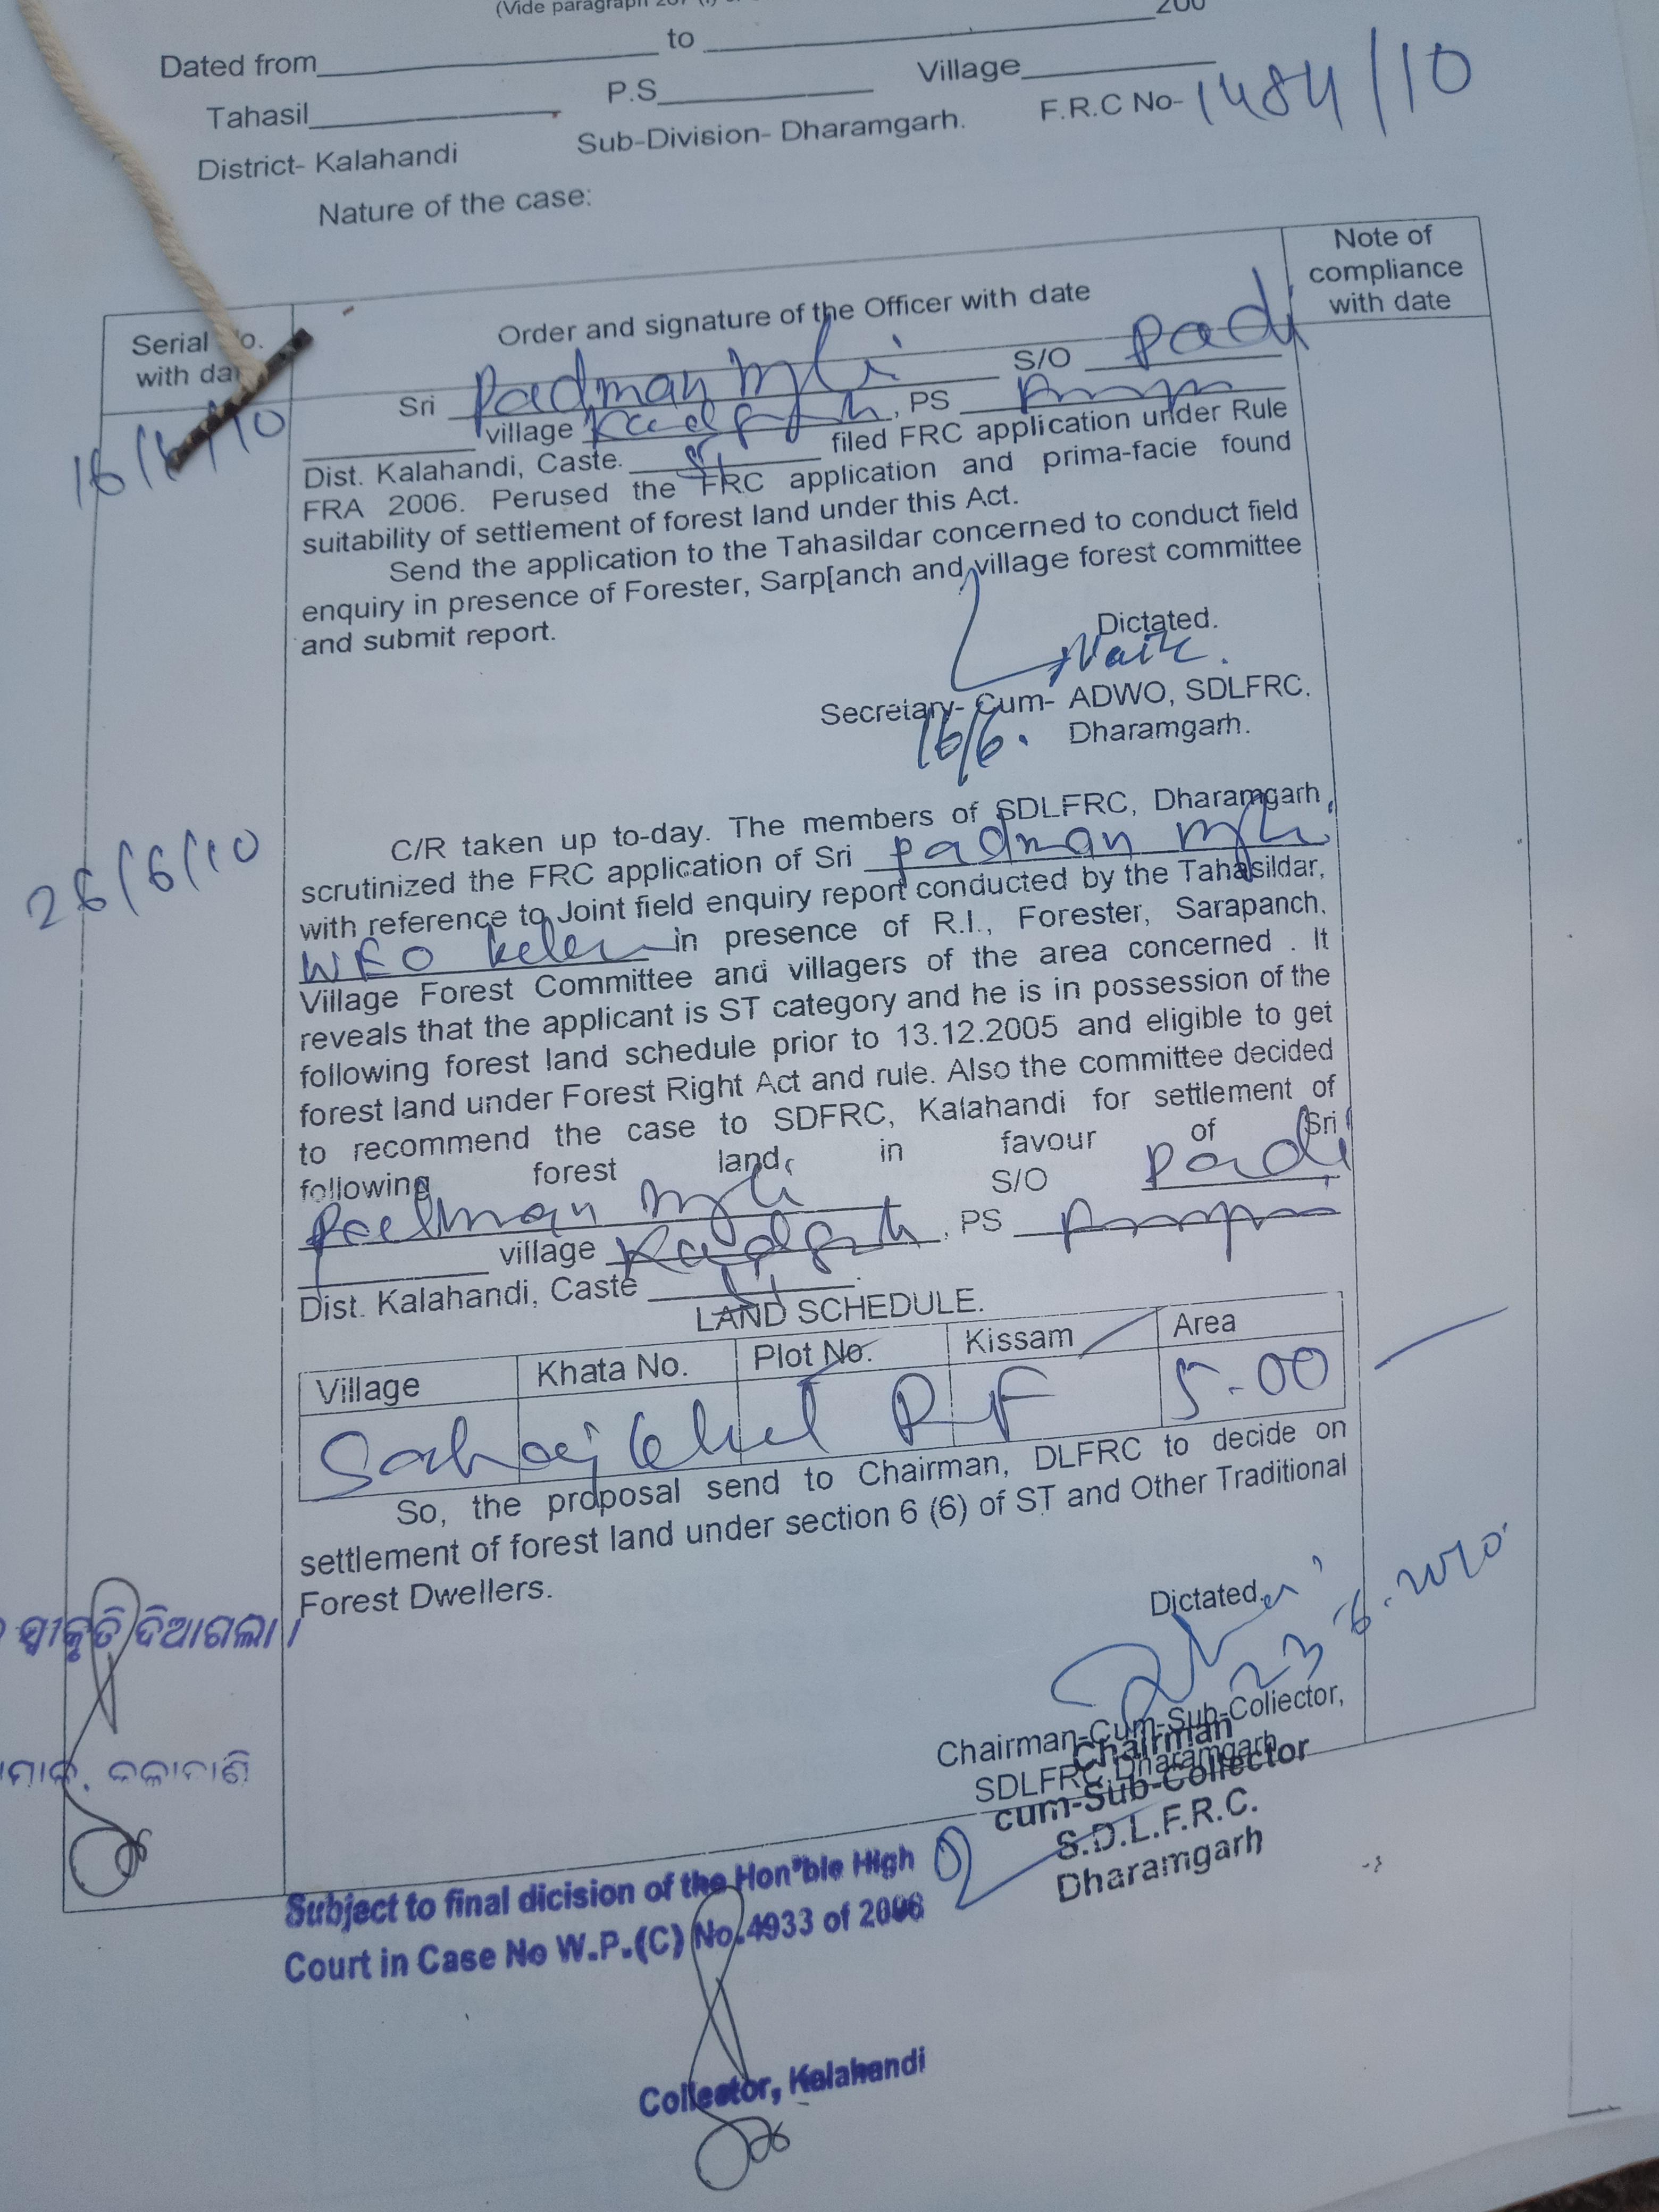 (Vide paragraph
Dated from to 200
Tahasil P.S Village
District- Kalahandi Sub-Division- Dharamgarh. F.R.C No- 1484/10
Nature of the case:
Serial No. with date
Order and signature of the Officer with date
Note of compliance with date
16/6/10
Sri Padman Mjhi S/O Padi
village , PS
Dist. Kalahandi, Caste. ST filed FRC application under Rule
FRA 2006. Perused the FRC application and prima-facie found
suitability of settlement of forest land under this Act.
Send the application to the Tahasildar concerned to conduct field
enquiry in presence of Forester, Sarp[anch and village forest committee
and submit report.
Dictated.
Naik
Secretary- Cum- ADWO, SDLFRC.
16/6. Dharamgarh.
26/6/10
C/R taken up to-day. The members of SDLFRC, Dharamgarh,
scrutinized the FRC application of Sri Padman Mjhi
with reference to Joint field enquiry report conducted by the Tahasildar,
WEO in presence of R.I., Forester, Sarapanch.
Village Forest Committee and villagers of the area concerned . It
reveals that the applicant is ST category and he is in possession of the
following forest land schedule prior to 13.12.2005 and eligible to get
forest land under Forest Right Act and rule. Also the committee decided
to recommend the case to SDFRC, Kalahandi for settlement of
following forest land, in favour of Sri
Padman Mjhi S/O Padi
village , PS
Dist. Kalahandi, Caste ST.
LAND SCHEDULE.
Village Khata No. Plot No. Kissam Area
RF 5.00
So, the proposal send to Chairman, DLFRC to decide on
settlement of forest land under section 6 (6) of ST and Other Traditional
Forest Dwellers.
Dictated.
23.6.2010
ସ୍ଵୀକୃତି ଦିଆଗଲା ।
Chairman-Cum-Sub-Collector,
SDLFRC, Dharamgarh
Chairman
cum-Sub-Collector
S.D.L.F.R.C.
Dharamgarh
Subject to final dicision of the Hon"ble High
Court in Case No W.P.(C) No.4933 of 2006
Collector, Kalahandi